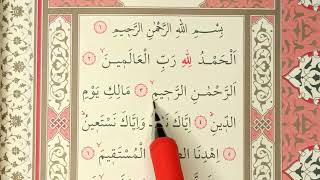 بِسْمِ اللهِ الرَّحْمٰنِ الرَّحِيمِ ١
اَلْحَمْدُ لِلهِ رَبِّ الْعَالَمِينَ ٢
اَلرَّحْمٰنِ الرَّحِيمِ ٣ مَالِكِ يَوْمِ
الدِّينِ ٤ اِيَّاكَ وَاِيَّاكَ نَسْتَعِينُ
٥ اِهْدِنَا الْمُسْتَقِيمَ ٦